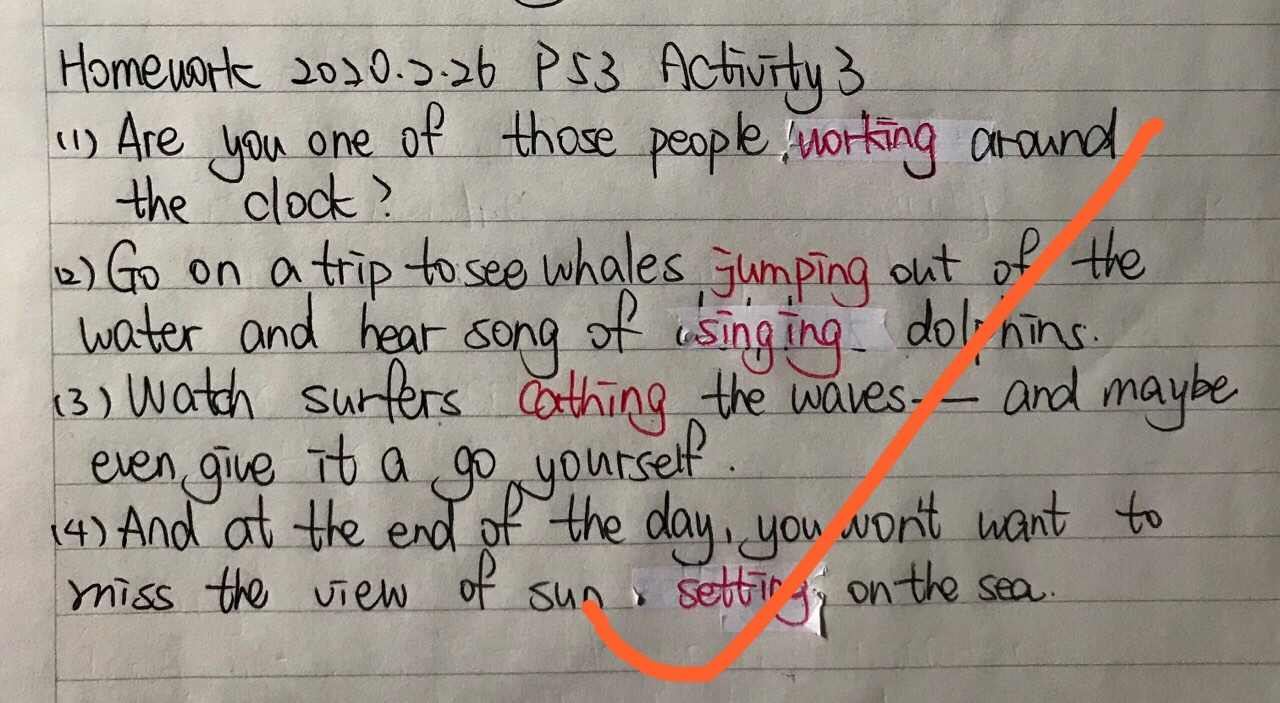 Homework 2020.2.26 P53 Activity 3
(1) Are you one of those people working around
the clock?
(2) Go on a trip to see whales jumping out of the
water and hear song of singing dolphins.
(3) Watch surfers cathing the waves — and maybe
even give it a go yourself.
(4) And at the end of the day, you won't want to
miss the view of sun setting on the sea.